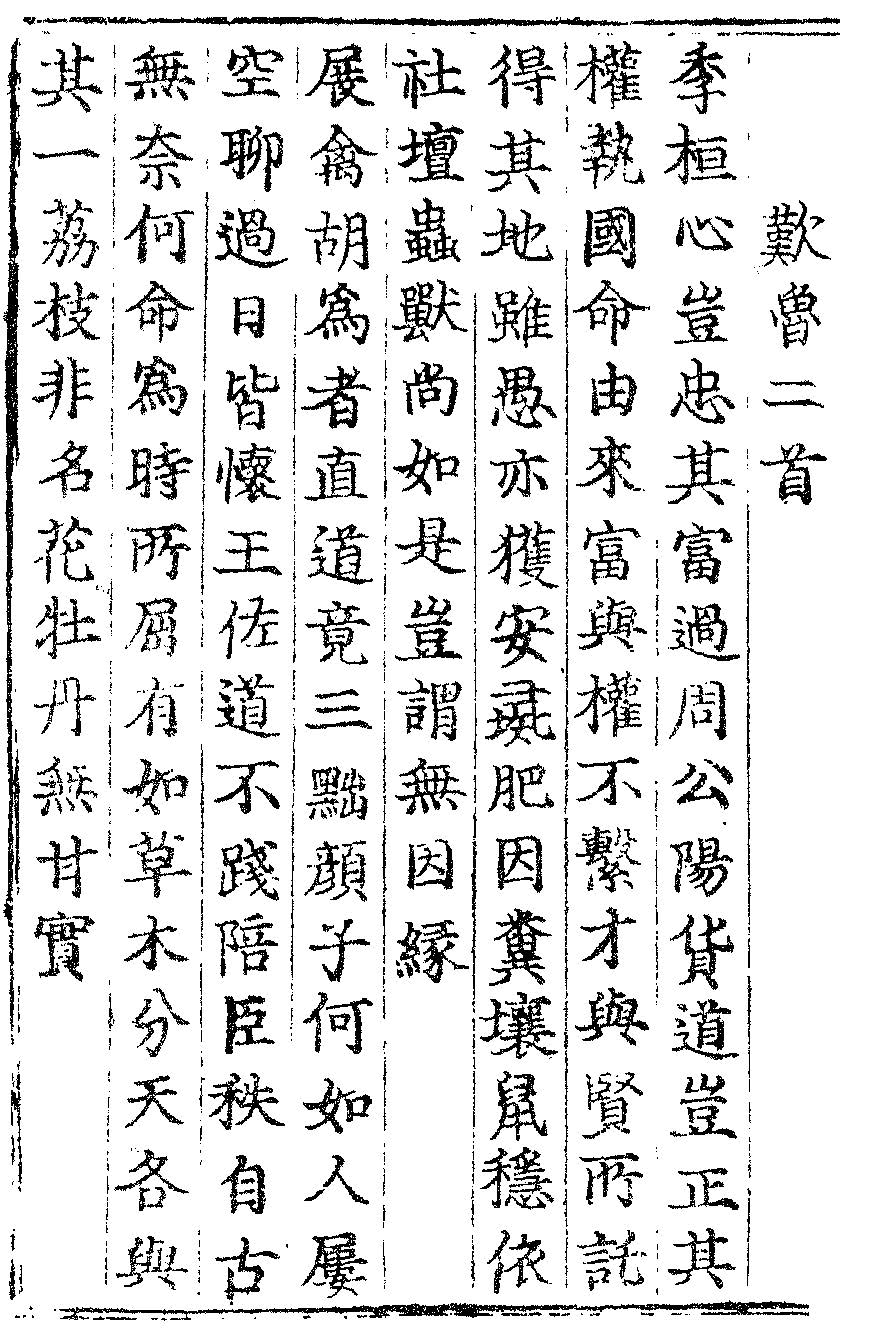 歎魯二首
季桓心豈忠其富過周公陽貨道豈正其
權執國命由來富與權不繫才與賢所託
得其地雖愚亦獲安彘肥因糞壤鼠穩依
社壇蟲獸尚如是豈謂無因緣
展禽胡爲者直道竟三黜顔子何如人屢
空聊過日皆懷王佐道不踐陪臣秩自古
無奈何命爲時所屈有如草木分天各與
其一荔枝非名花牡丹無甘實